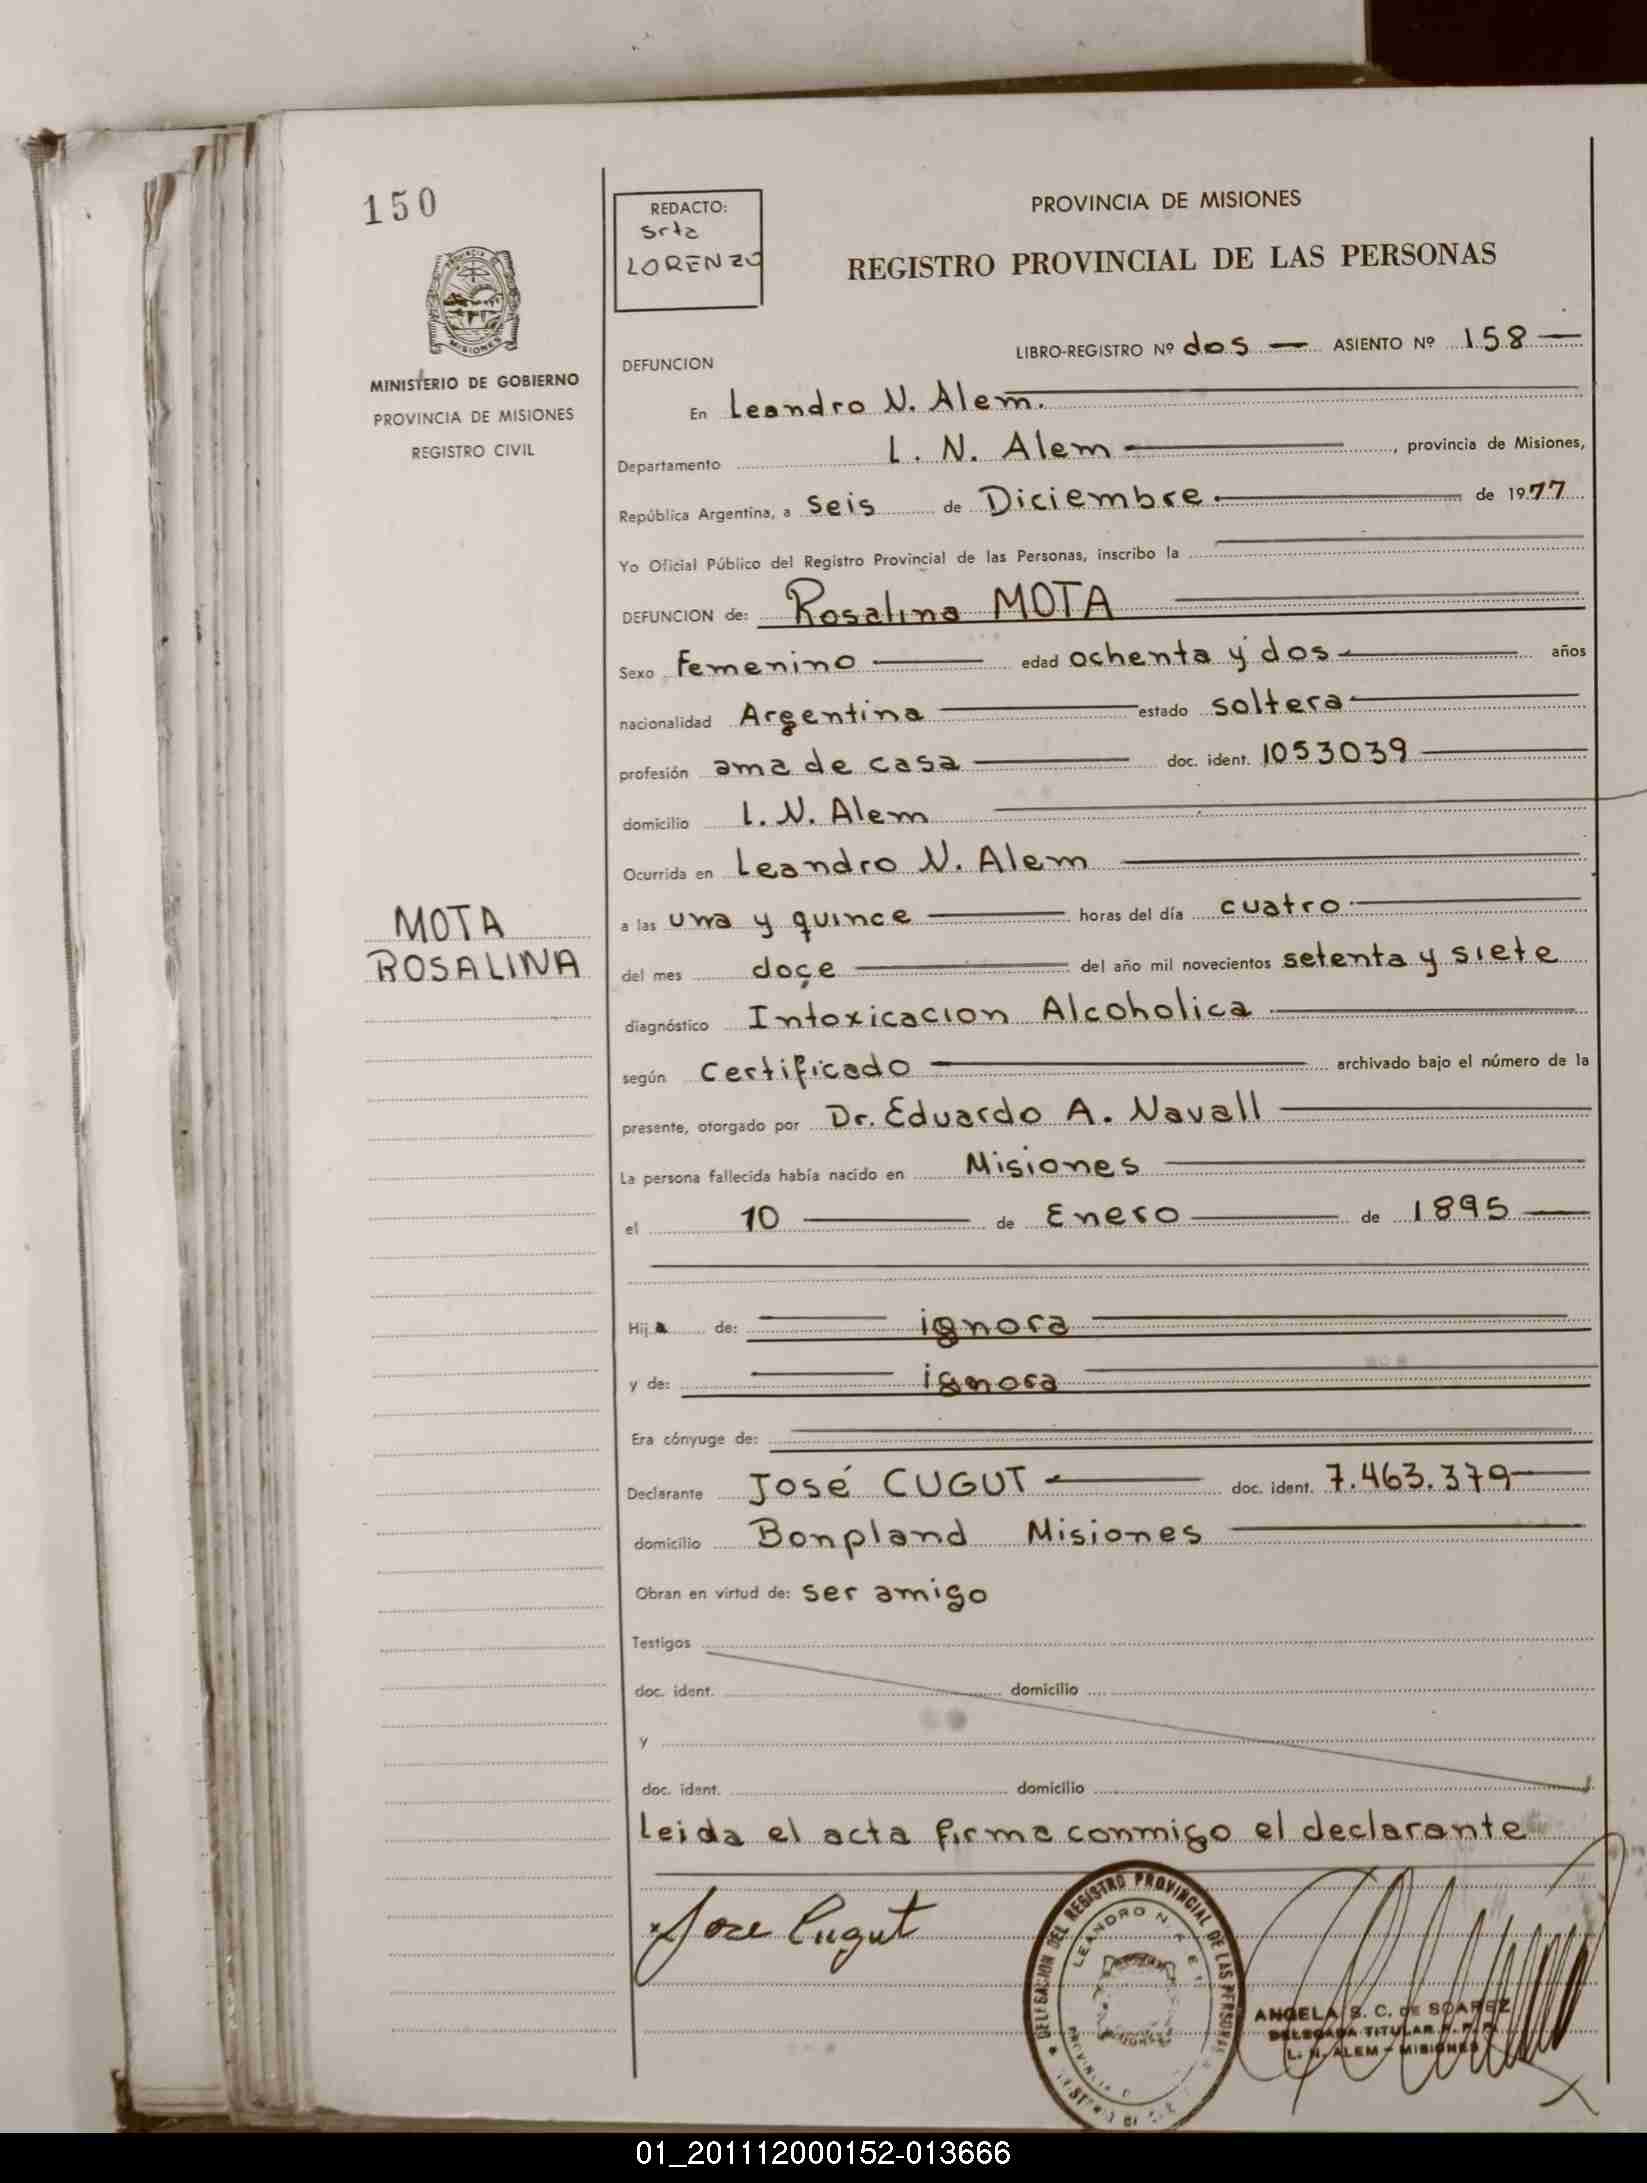 150
REDACTO:
Srta
LORENZO
PROVINCIA DE MISIONES
REGISTRO PROVINCIAL DE LAS PERSONAS
MISIONES
MINISTERIO DE GOBIERNO
PROVINCIA DE MISIONES
REGISTRO CIVIL
DEFUNCION
LIBRO-REGISTRO Nº dos — ASIENTO Nº 158 —
En Leandro N. Alem.
Departamento L. N. Alem — , provincia de Misiones,
República Argentina, a seis de Diciembre. — de 1977
Yo Oficial Público del Registro Provincial de las Personas, inscribo la
DEFUNCION de: Rosalina MOTA
Sexo Femenino — edad ochenta y dos — años
nacionalidad Argentina — estado soltera —
profesión ama de casa — doc. ident. 1053039 —
domicilio L. N. Alem
Ocurrida en Leandro N. Alem —
a las una y quince — horas del día cuatro —
MOTA
ROSALINA
del mes doce — del año mil novecientos setenta y siete
diagnóstico Intoxicacion Alcoholica —
según Certificado — archivado bajo el número de la
presente, otorgado por Dr. Eduardo A. Navall —
La persona fallecida había nacido en Misiones —
el 10 — de Enero — de 1895 —
Hija de: — ignora —
y de: — ignora —
Era cónyuge de: —
Declarante José CUGUT — doc. ident. 7.463.379 —
domicilio Bonpland Misiones —
Obran en virtud de: ser amigo
Testigos
doc. ident. domicilio
y
doc. ident. domicilio
Leida el acta firma conmigo el declarante
Jose Cugut
DELEGACION DEL REGISTRO PROVINCIAL DE LAS PERSONAS
LEANDRO N.
ANGELA S. C. DE SOAREZ
DELEGADA TITULAR R. P. P.
L. N. ALEM - MISIONES
01_201112000152-013666